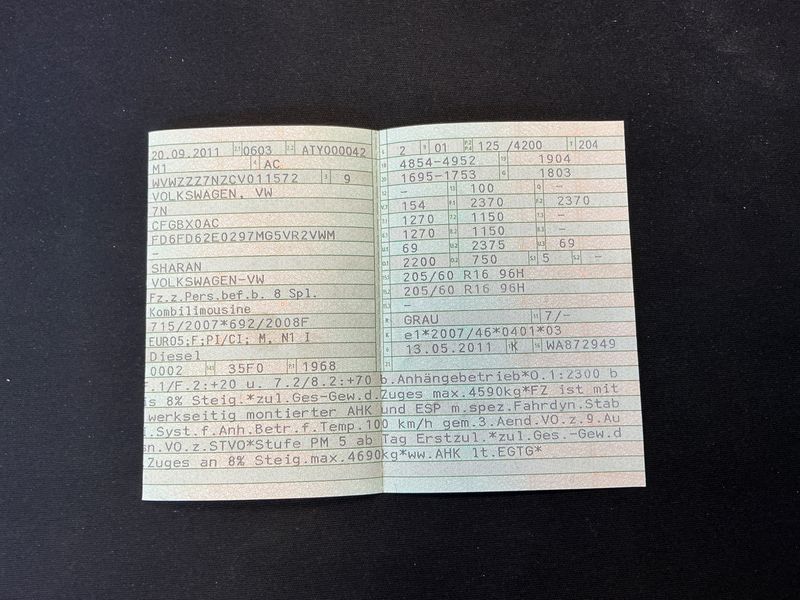 20.09.2011 0603 ATY000042
M1 AC
WVWZZZ7NZCV011572 9
VOLKSWAGEN, VW
7N
CFGBX0AC
FD6FD62E0297MG5VR2VWM
–
SHARAN
VOLKSWAGEN-VW
Fz.z.Pers.bef.b. 8 Spl.
Kombilimousine
715/2007*692/2008F
EURO5;F;PI/CI; M, N1 I
Diesel
0002 35F0 1968
2 01 125 /4200 204
4854-4952 1904
1695-1753 1803
– 100 –
154 2370 2370
1270 1150 –
1270 1150 –
69 2375 69
2200 750 5 –
205/60 R16 96H
205/60 R16 96H
–
GRAU 7/–
e1*2007/46*0401*03
13.05.2011 K WA872949
F.1/F.2:+20 u. 7.2/8.2:+70 b.Anhängebetrieb*O.1:2300 b
is 8% Steig.*zul.Ges-Gew.d.Zuges max.4590kg*FZ ist mit
werkseitig montierter AHK und ESP m.spez.Fahrdyn.Stab
.Syst.f.Anh.Betr.f.Temp.100 km/h gem.3.Aend.VO.z.9.Au
sn.VO.z.STVO*Stufe PM 5 ab Tag Erstzul.*zul.Ges.-Gew.d
.Zuges an 8% Steig.max.4690kg*ww.AHK lt.EGTG*